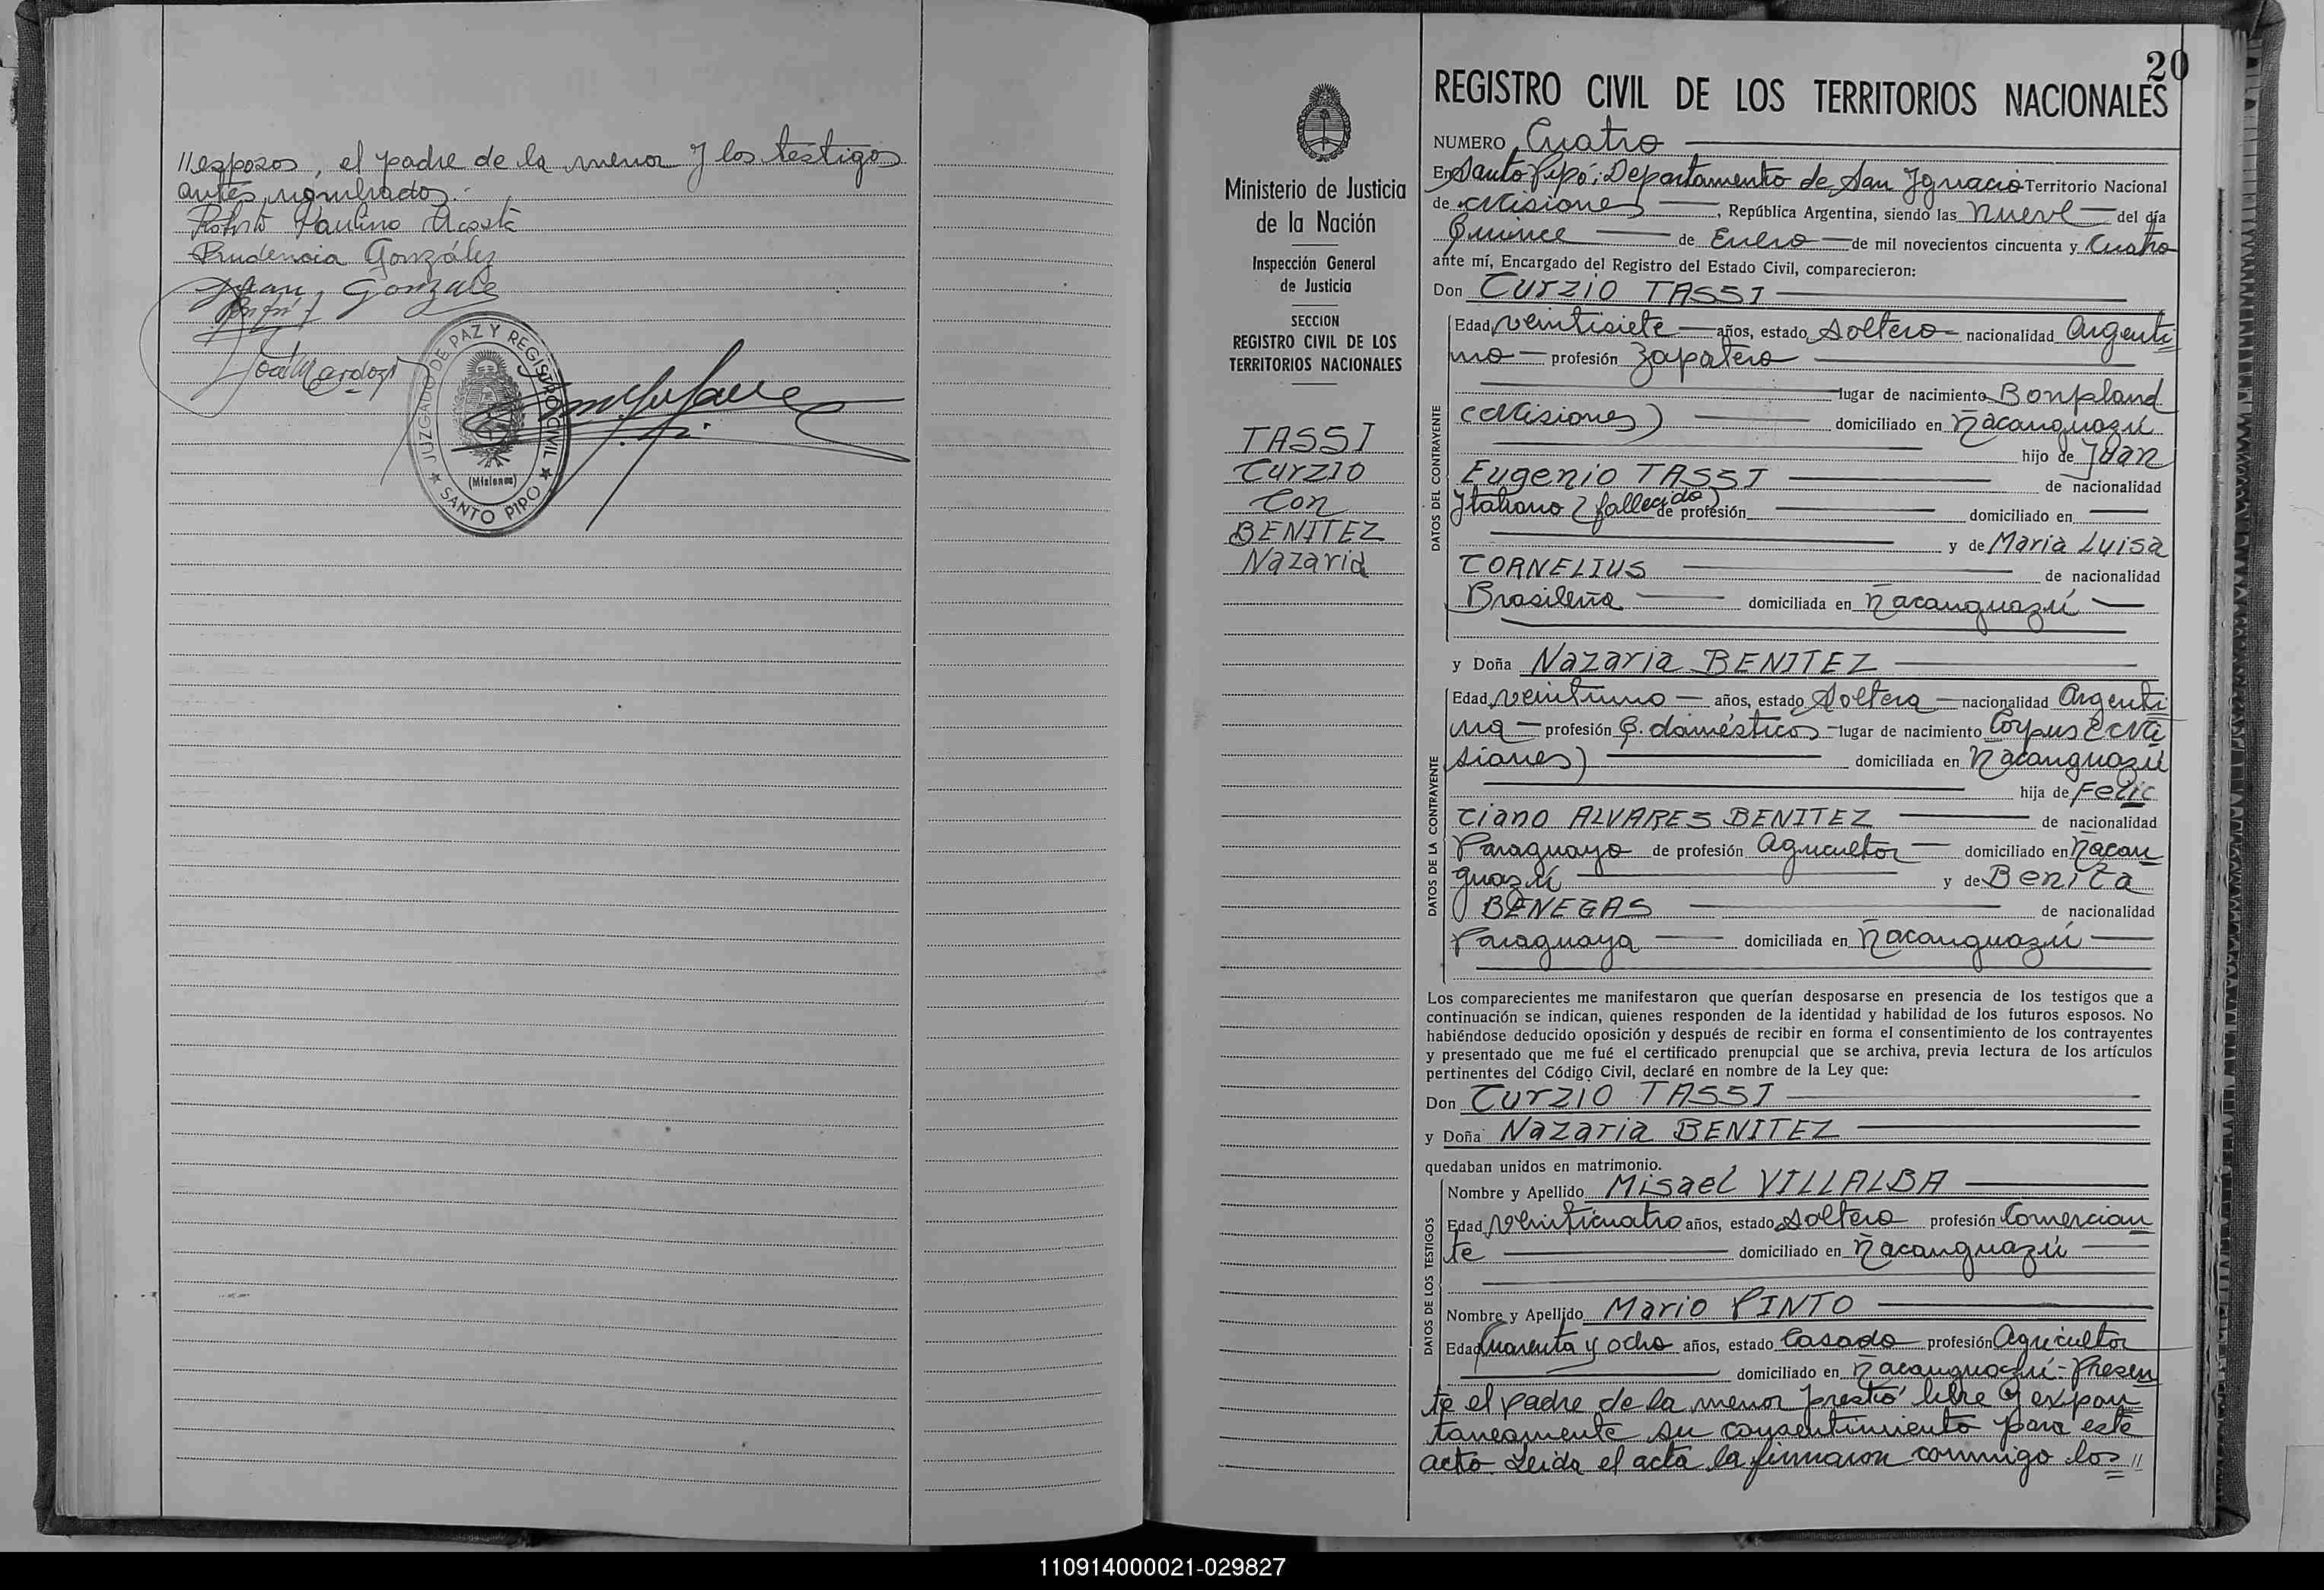 //esposos, el padre de la menor y los testigos
antes nombrados.-
Paulino Acosta
Prudencia González
Juan Gonzale
JUZGADO DE PAZ Y REGISTRO CIVIL
(Misiones)
★ SANTO PIPO ★
20
Ministerio de Justicia
de la Nación
Inspección General
de Justicia
SECCION
REGISTRO CIVIL DE LOS
TERRITORIOS NACIONALES
TASSI
Curzio
Con
BENITEZ
Nazaria
REGISTRO CIVIL DE LOS TERRITORIOS NACIONALES
NUMERO Cuatro
En Santo Pipó; Departamento de San Ignacio Territorio Nacional
de Misiones, República Argentina, siendo las nueve del día
Quince de Enero de mil novecientos cincuenta y cuatro
ante mí, Encargado del Registro del Estado Civil, comparecieron:
Don Curzio TASSI
DATOS DEL CONTRAYENTE
Edad veintisiete años, estado soltero nacionalidad Argenti
no profesión Zapatero
lugar de nacimiento Bonpland
(Misiones) domiciliado en Ñacanguazú
hijo de Juan
Eugenio TASSI de nacionalidad
Italiano (fallecido) de profesión domiciliado en
y de Maria Luisa
CORNELIUS de nacionalidad
Brasileña domiciliada en Ñacanguazú
y Doña Nazaria BENITEZ
DATOS DE LA CONTRAYENTE
Edad veintiuno años, estado soltera nacionalidad Argenti
na profesión Q. domésticos lugar de nacimiento Corpus (Mi
siones) domiciliada en Ñacanguazú
hija de Felic
ciano ALVARES BENITEZ de nacionalidad
Paraguayo de profesión Agricultor domiciliado en Ñacan
guazú y de Benita
BENEGAS de nacionalidad
Paraguaya domiciliada en Ñacanguazú
Los comparecientes me manifestaron que querían desposarse en presencia de los testigos que a
continuación se indican, quienes responden de la identidad y habilidad de los futuros esposos. No
habiéndose deducido oposición y después de recibir en forma el consentimiento de los contrayentes
y presentado que me fué el certificado prenupcial que se archiva, previa lectura de los artículos
pertinentes del Código Civil, declaré en nombre de la Ley que:
Don Curzio TASSI
y Doña Nazaria BENITEZ
quedaban unidos en matrimonio.
DATOS DE LOS TESTIGOS
Nombre y Apellido Misael VILLALBA
Edad veinticuatro años, estado soltero profesión Comercian
te domiciliado en Ñacanguazú
Nombre y Apellido Mario PINTO
Edad Cuarenta y ocho años, estado Casado profesión Agricultor
domiciliado en Ñacanguazú.- Presen
te el padre de la menor prestó libre y expon
taneamente su consentimiento para este
acto. Leida el acta la firmaron conmigo los //
110914000021-029827